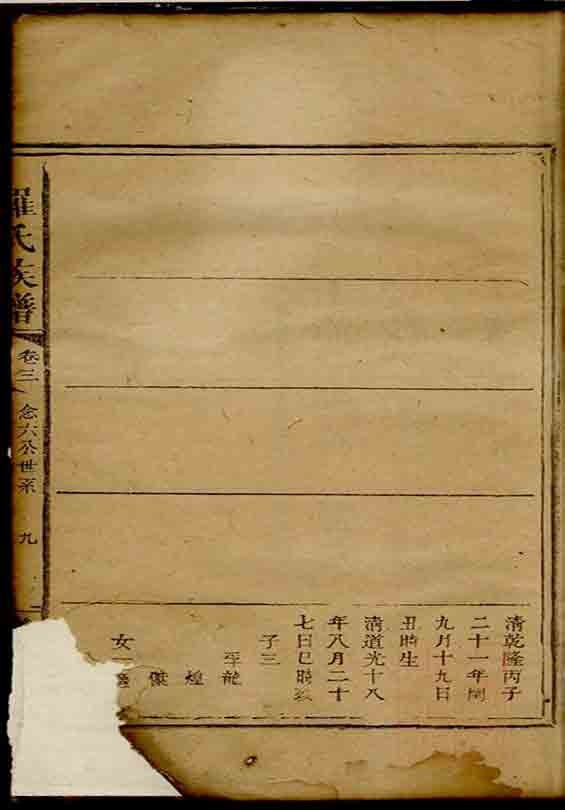 清乾隆丙子
二十一年閏
九月十九日
丑時生
清道光十八
年八月二十
七日巳時歿
子三
龍
煌
傑
女一
羅氏族譜
卷三
念六公世系
九